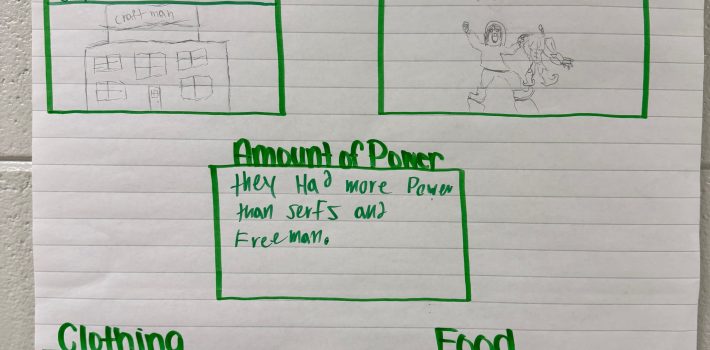 craftman
Amount of Power
they Had more Power
than serfs and
Freeman.
Clothing
Food